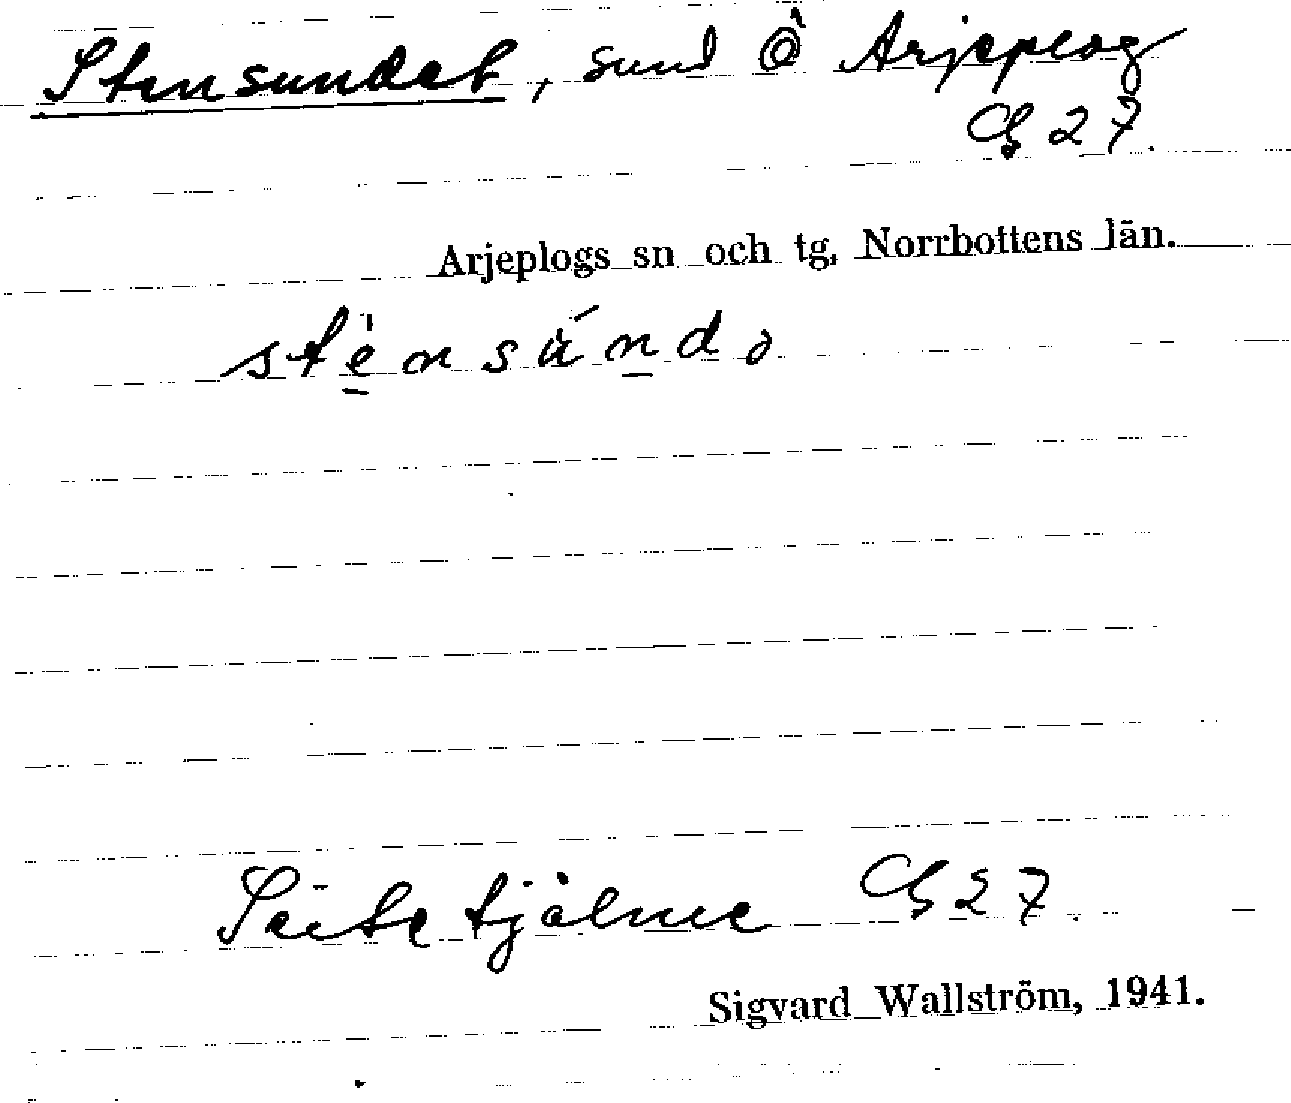 Stensundet, sund Ö Arjeplog
Cg 27.
Arjeplogs sn och tg. Norrbottens län.
stènsúndə
Seitetjålme Cg 27.
Sigvard Wallström, 1941.